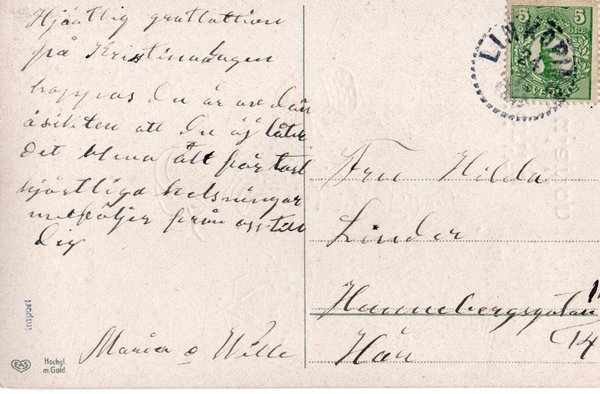 Hjärtlig gratlattion
på Kristinadagen
hoppas du är av den
åsikten att du ej låter
det bliva ått för tort
hjärtliga helsningar
medföljer från oss till
dig
Maria o Wille
import
EAS
Hochgl.
m. Gold
5 5
ÖRE
SVERIGE
LINKÖPING
Fru Hilda
Linder
Hunnebergsgatan
14
Här